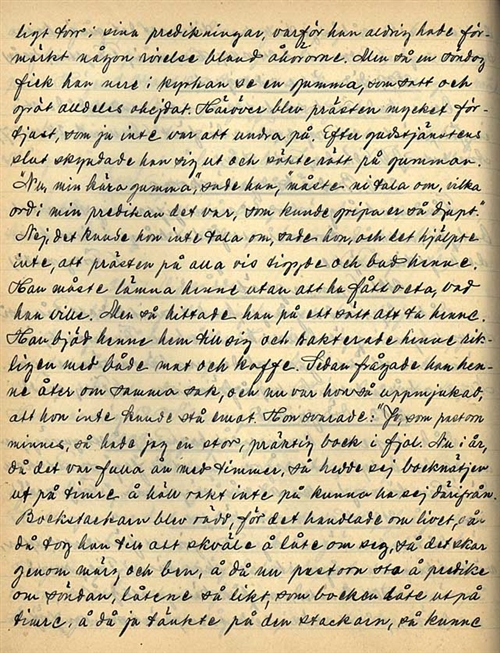 ligt torr i sina predikningar, varför han aldrig hade för-
märkt någon rörelse bland åhörarne. Men så en söndag
fick han nere i kyrkan se en gumma, som satt och
grät alldeles ohejdat. Häröver blev prästen mycket för-
tjust, som ju inte var att undra på. Efter gudstjänstens
slut skyndade han sig ut och sökte rätt på gumman.
"Nu, min kära gumma", sade han, "måste ni tala om, vilka
ord i min predikan det var, som kunde gripa er så djupt."
Nej, det kunde hon inte tala om, sade hon, och det hjälpte
inte, att prästen på alla vis tiggde och bad henne.
Han måste lämna henne utan att ha fått veta, vad
han ville. Men så hittade han på ett sätt att ta henne.
Han bjöd henne hem till sig och trakterade henne rik-
ligen med både mat och kaffe. Sedan frågade han hen-
ne åter om samma sak, och nu var hon så uppmjukad,
att hon inte kunde stå emot. Hon svarade: "Jo, som pastorn
minnes, så hade jag en stor, präktig bock i fjol. Nu i år,
då det var fulla ån med timmer, så hedde sej bocknätjen
ut på timre å höll rakt inte på kunna ha sej därifrån.
Bockstackarn blev rädd, för det handlade om livet, så
då tog han till att skväle å låte om seg, så det skar
genom märg och ben, å då nu pastorn sta å predike
om söndan, låtene så likt, som bocken låte utpå
timre, å då ja tänkte på den stackarn, så kunne